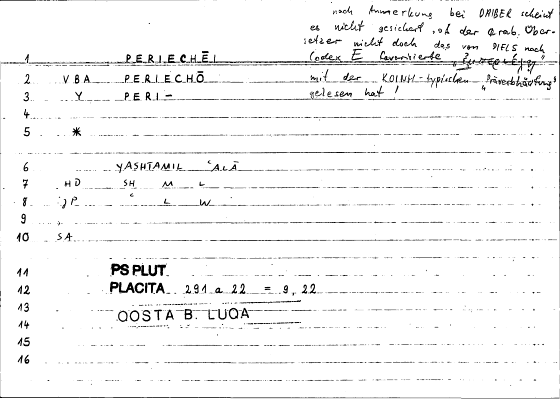 nach Anmerkung bei DAIBER scheint
es nicht gesichert, ob der arab. Über-
setzer nicht doch das von DIELS nach
1 PERIECHĒI Codex E favorisierte
2 VBA PERIECHŌ mit der KOINH-typischen "Präverbhäufung"
3 Y PERI– gelesen hat!
4
5 *
6 YASHTAMIL ʿALĀ
7 HD SH M L
8 JP ʿ L W
9
10 SA
11 PS PLUT
12 PLACITA 291 a 22 = 9, 22
13
14 QOSTA B. LUQA
15
16